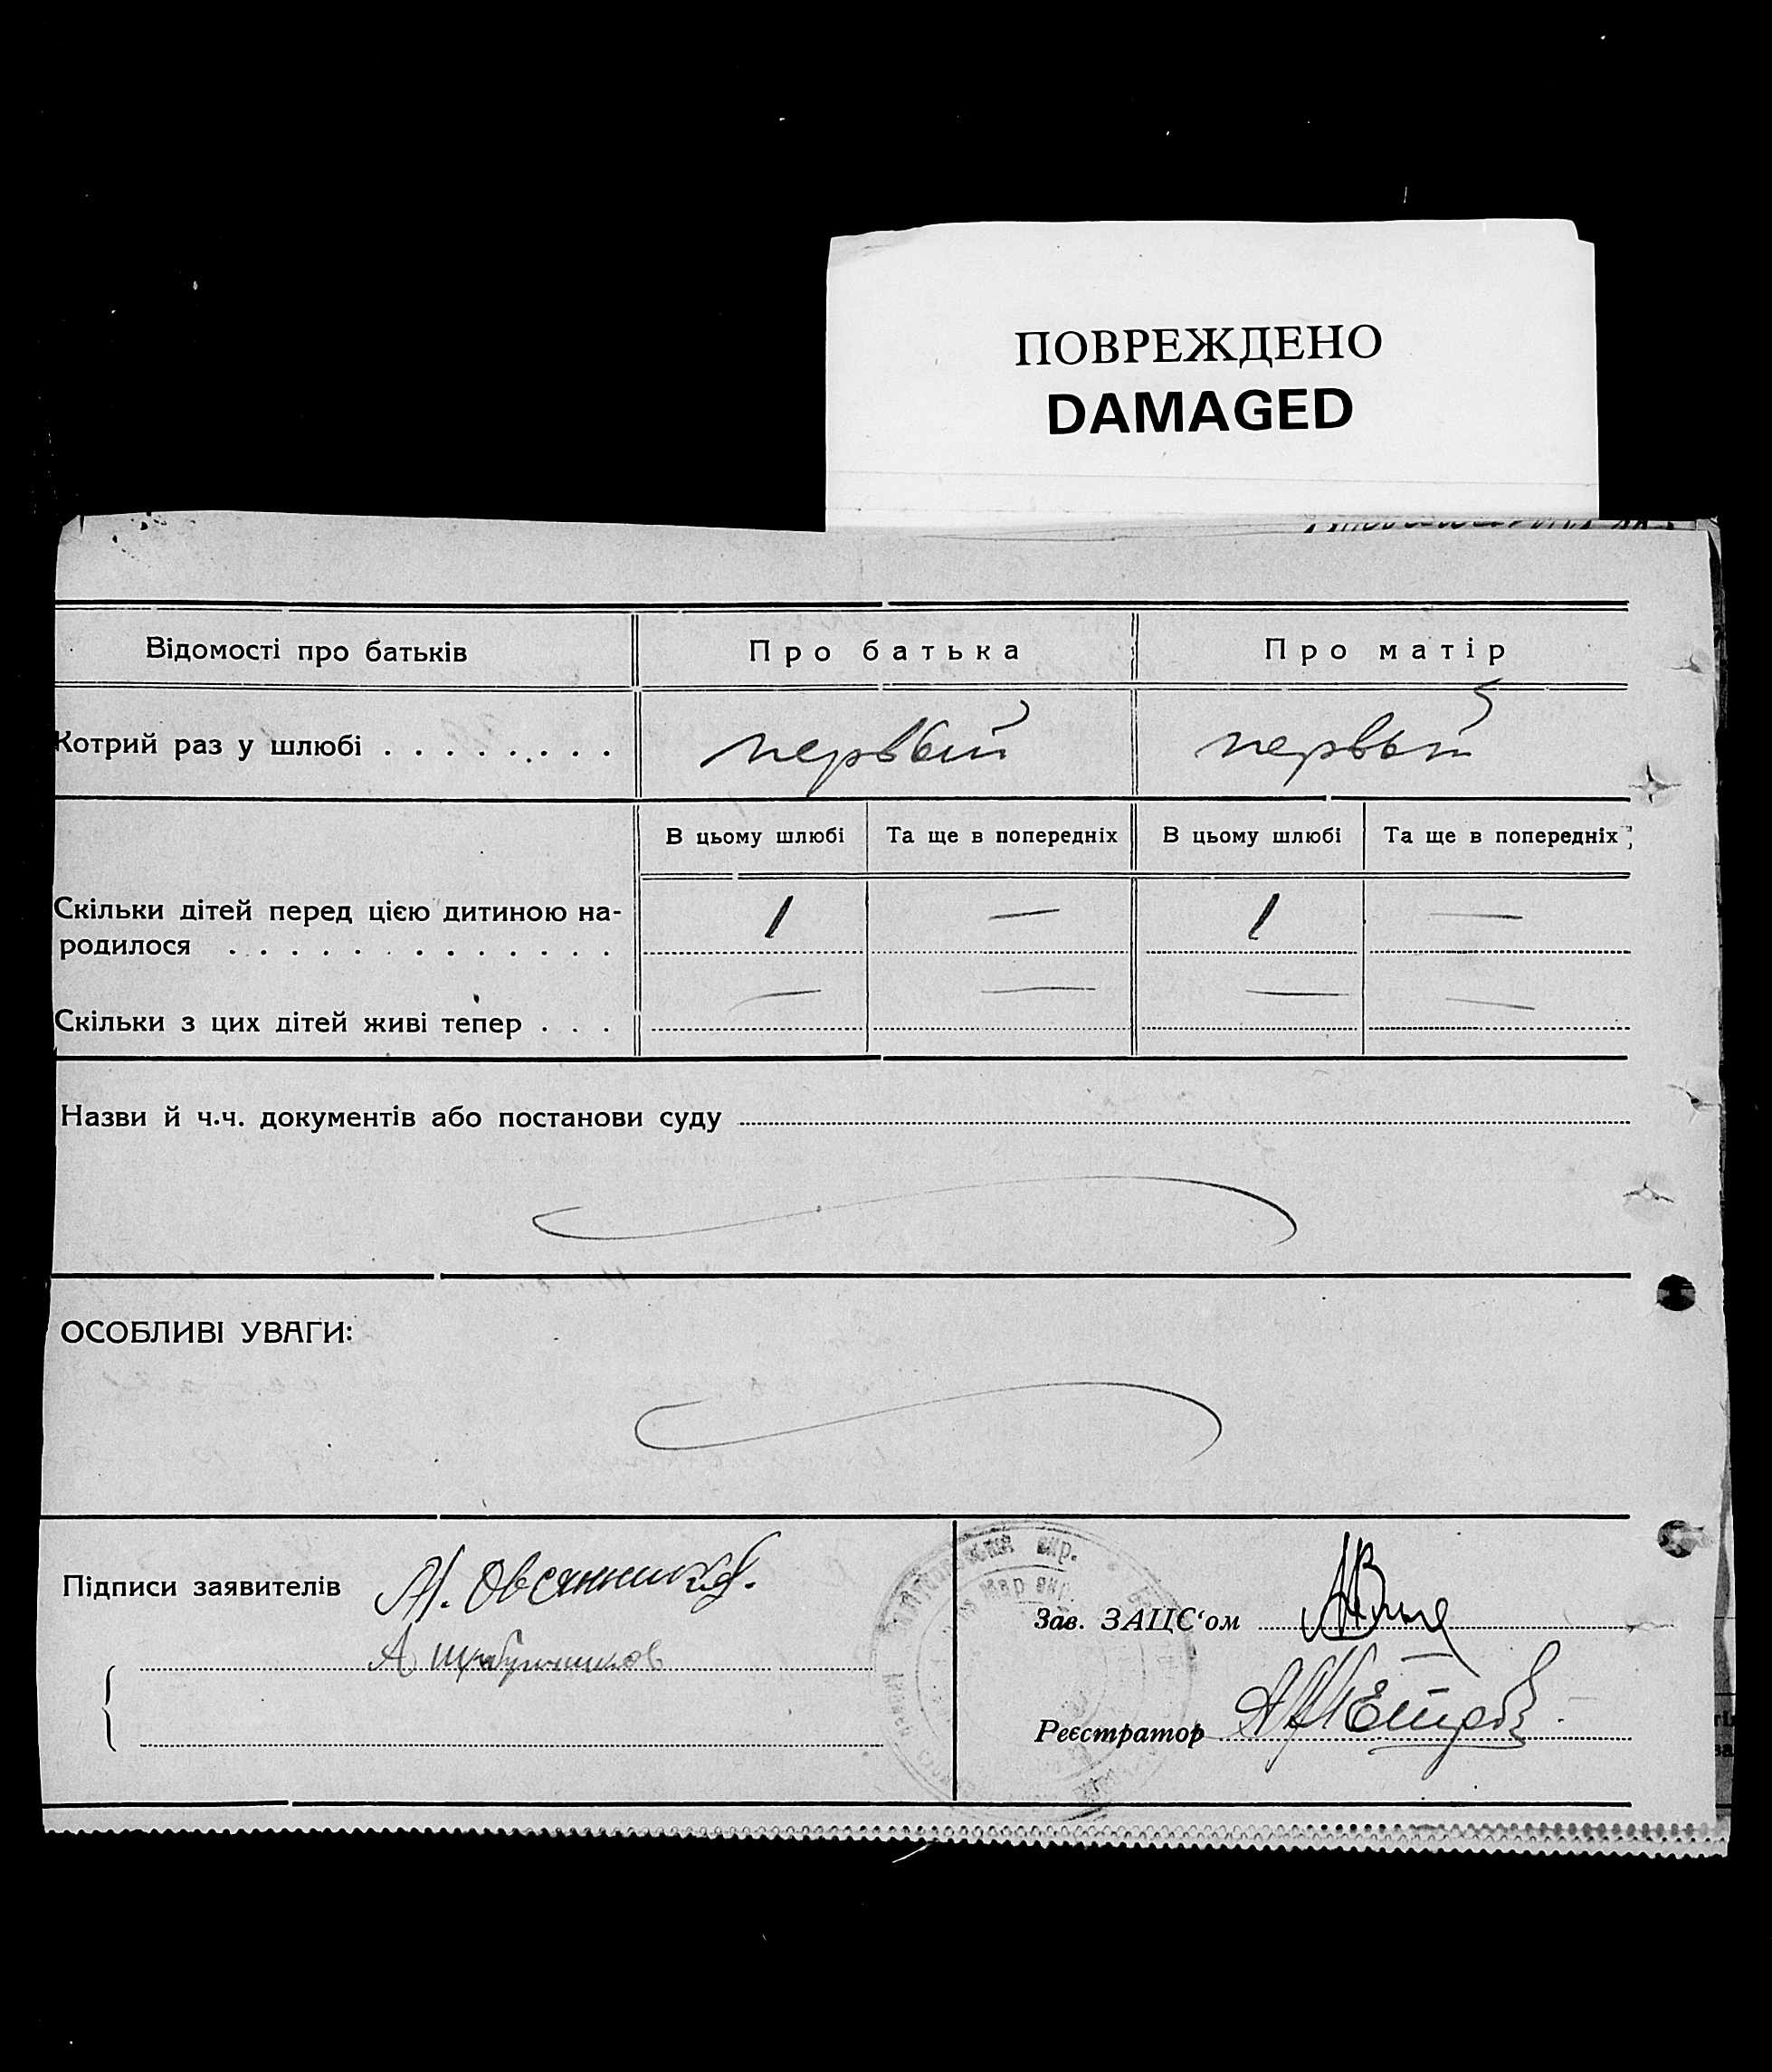 ПОВРЕЖДЕНО
DAMAGED
Відомості про батьків Про батька Про матір
Котрий раз у шлюбі . . . . . . . . первый первый
В цьому шлюбі Та ще в попередніх В цьому шлюбі Та ще в попередніх
Скільки дітей перед цією дитиною на- 1 — 1 —
родилося . . . . . . . . . . . . .
Скільки з цих дітей живі тепер . . . — — — —
Назви й ч.ч. документів або постанови суду
ОСОБЛИВІ УВАГИ:
Підписи заявителів
Зав. ЗАЦС‘ом
Реєстратор